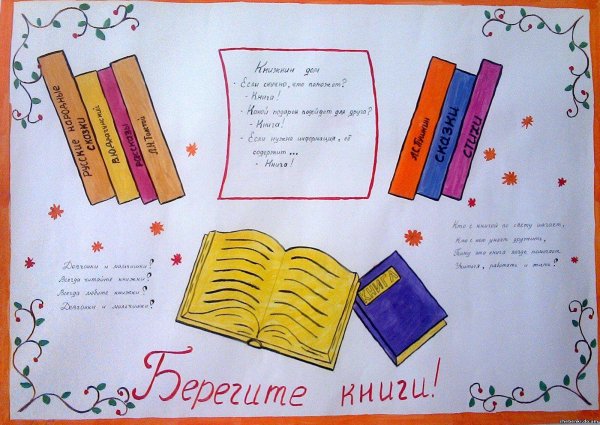 Русские народные
сказки
В.Ю.Драгунский
рассказы
Л.Н.Толстой
Книжкин дом
- Если скучно, что поможет?
- Книга!
- Какой подарок подойдёт для друга?
- Книга!
- Если нужна информация, её
содержит ...
- Книга!
А.С.Пушкин
сказки
стихи
Девчонки и мальчишки!
Всегда читайте книжки!
Всегда любите книжки!
Девчонки и мальчишки!
Кто с книгой по свету шагает,
Кто с ней умеет дружить,
Тому эта книга всегда помогает
Учиться, работать и жить!
КНИГА
Берегите книги!